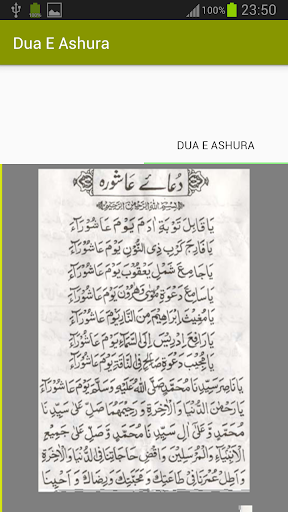 100% 23:50
Dua E Ashura
DUA E ASHURA
دُعائے عاشورہ
بِسْمِ اللهِ الرَّحْمٰنِ الرَّحِيْمِ
يَا قَابِلَ تَوْبَةِ اٰدَمَ يَوْمَ عَاشُوْرَآءَ
يَا فَارِجَ كَرْبِ ذِى النُّوْنِ يَوْمَ عَاشُوْرَآءَ
يَا جَامِعَ شَمْلِ يَعْقُوْبَ يَوْمَ عَاشُوْرَآءَ
يَا سَامِعَ دَعْوَةِ مُوْسٰى وَهٰرُوْنَ يَوْمَ عَاشُوْرَآءَ
يَا مُغِيْثَ اِبْرَاهِيْمَ مِنَ النَّارِ يَوْمَ عَاشُوْرَآءَ
يَا رَافِعَ اِدْرِيْسَ اِلَى السَّمَآءِ يَوْمَ عَاشُوْرَآءَ
يَا مُجِيْبَ دَعْوَةِ صَالِحٍ فِى النَّاقَةِ يَوْمَ عَاشُوْرَآءَ
يَا نَاصِرَ سَيِّدِنَا مُحَمَّدٍ صَلَّى اللهُ عَلَيْهِ وَسَلَّمَ يَوْمَ عَاشُوْرَآءَ
يَا رَحْمٰنَ الدُّنْيَا وَالْاٰخِرَةِ وَرَحِيْمَهُمَا صَلِّ عَلٰى سَيِّدِنَا
مُحَمَّدٍ وَّعَلٰى اٰلِ سَيِّدِنَا مُحَمَّدٍ وَّصَلِّ عَلٰى جَمِيْعِ
الْاَنْبِيَآءِ وَالْمُرْسَلِيْنَ وَاقْضِ حَاجَاتِنَا فِى الدُّنْيَا وَالْاٰخِرَةِ
وَاَطِلْ عُمْرَنَا فِىْ طَاعَتِكَ وَمَحَبَّتِكَ وَرِضَاكَ وَاَحْيِنَا